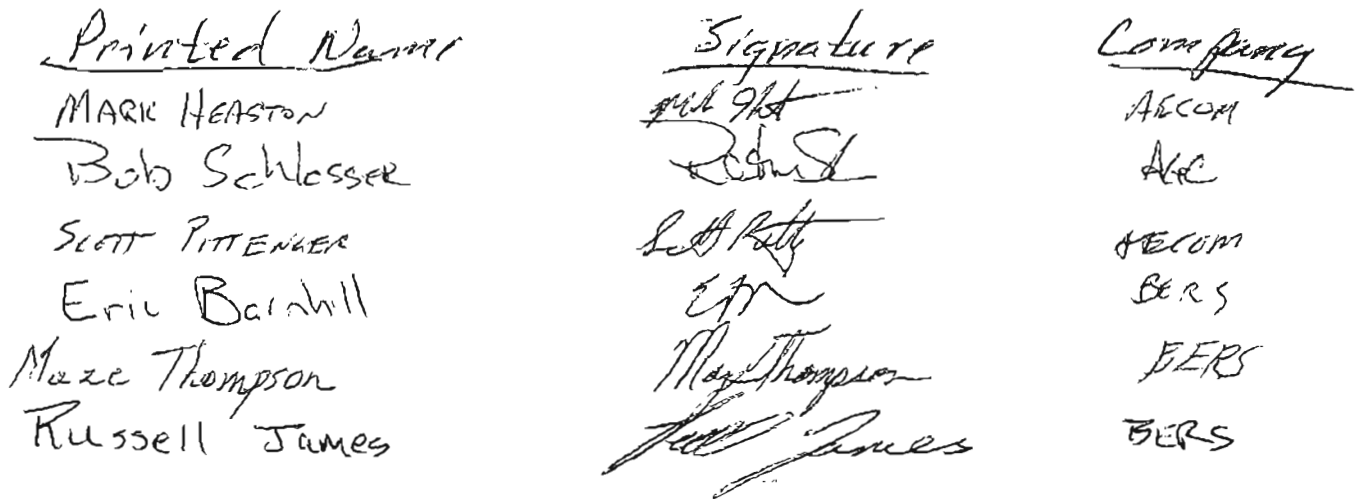 Printed Name Signature Company
MARK HEASTON AECOM
Bob Schlosser
SCOTT PITTENGER AECOM
Eric Barnhill BERS
Maze Thompson Maze Thompson BERS
Russell James James BERS